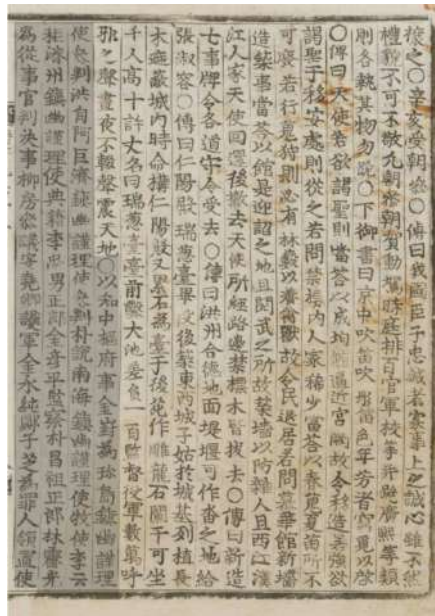 接之○辛亥受朝參○傳曰我國臣子忠誠者寡事上之誠心雖不然
禮貌不可不敬凡朝參朝賀動駕時庭排百官軍校等路廣熙等類
則各執其物勿亂○下御書曰京中吹笛吹彤笛色年芳者窮覓以啓
○傳曰天使若欲謁聖則當答以成均館逼近宮闕故今移造若強欲
謁聖于移安處則從之若問禁標內人家稀少當答以春蒐夏苗所不
可廢若行蒐狩則必有林藪以養禽獸故令民退居若問慕華館新墻
造築事當答以館是迎詔之地且閱武之所故築墻以防雜人且西江漢
江人家天使回還後撤去天使所經路邊禁標木暫拔去○傳曰新造
七事牌令各道守令受去○傳曰洪州合德地面堤堰可作畓之地給
張淑容○傳曰仁陽殿瑞葱臺畢役後築東西城子姑於城基列植長
木遮蔽城內時命搆仁陽殿又累石爲臺于後苑作雕龍石欄干可坐
千人高十許丈名曰瑞葱臺臺前鑿大池委員一百監督役軍數萬呼
邪之聲晝夜不輟聲震天地○以知中樞府事金勘爲珍島鎭幽謹理
使參判洪自阿巨濟鎭幽謹理使參判朴說南海鎭幽謹理使牧使李云
秬濟州鎭幽謹理使典籍李忠男正郎金音平監察朴昌祖正郎林霽光
爲從事官判決事柳房參議宋堯卿護軍金永純副子芝爲罪人領置使